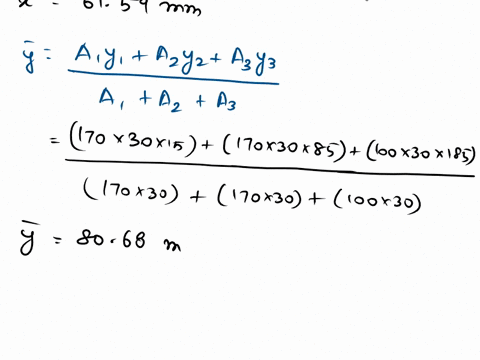 = 61.54 mm
ȳ = A₁y₁ + A₂y₂ + A₃y₃
A₁ + A₂ + A₃
= (170×30×15) + (170×30×85) + (100×30×185)
(170×30) + (170×30) + (100×30)
ȳ = 80.68 m